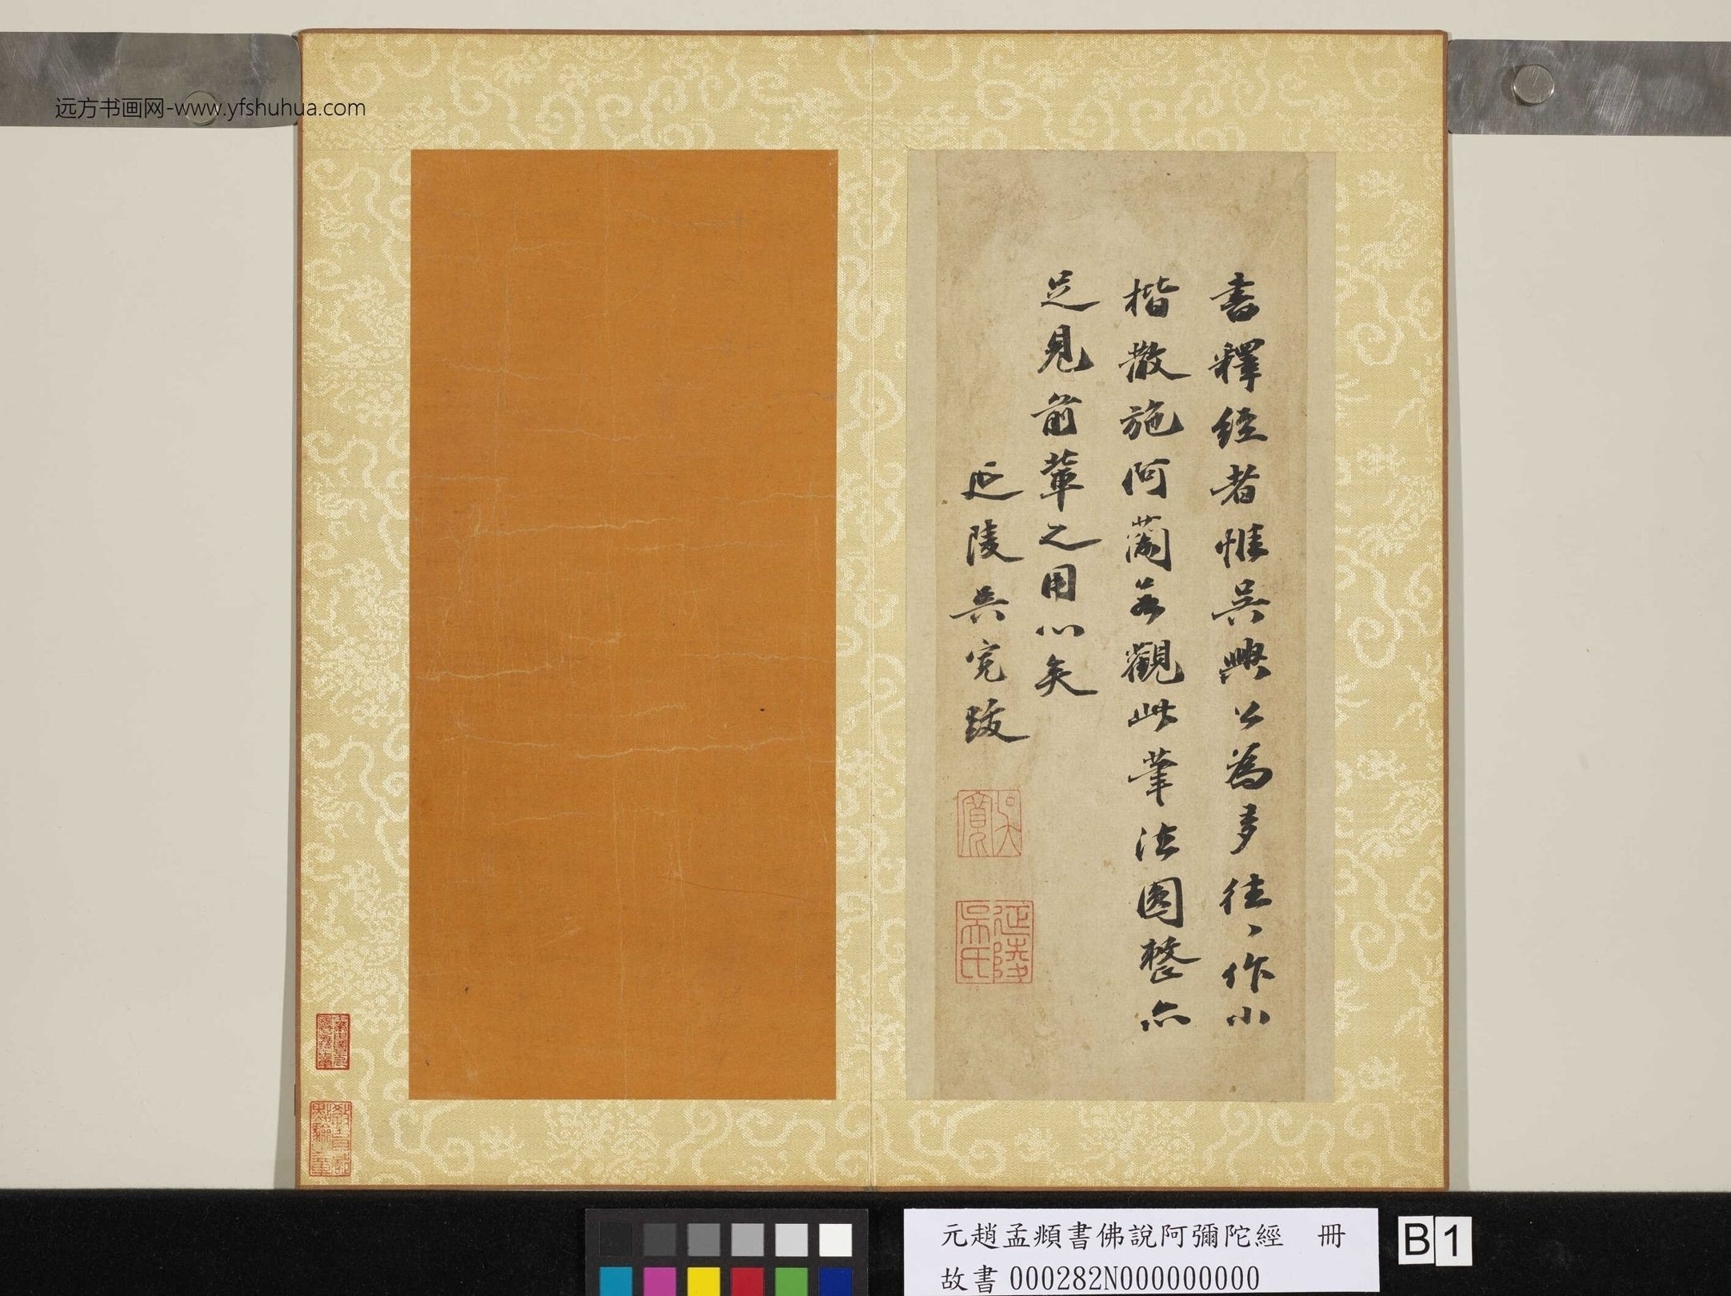 远方书画网-www.yfshuhua.com
書釋經者惟吳興公為多往〻作小
楷散施阿蘭若觀此筆法圓整亦
足見前輩之用心矣
延陵吳寬跋
吳寬
延陵吳氏
元趙孟頫書佛說阿彌陀經 冊
故書000282N000000000
B1